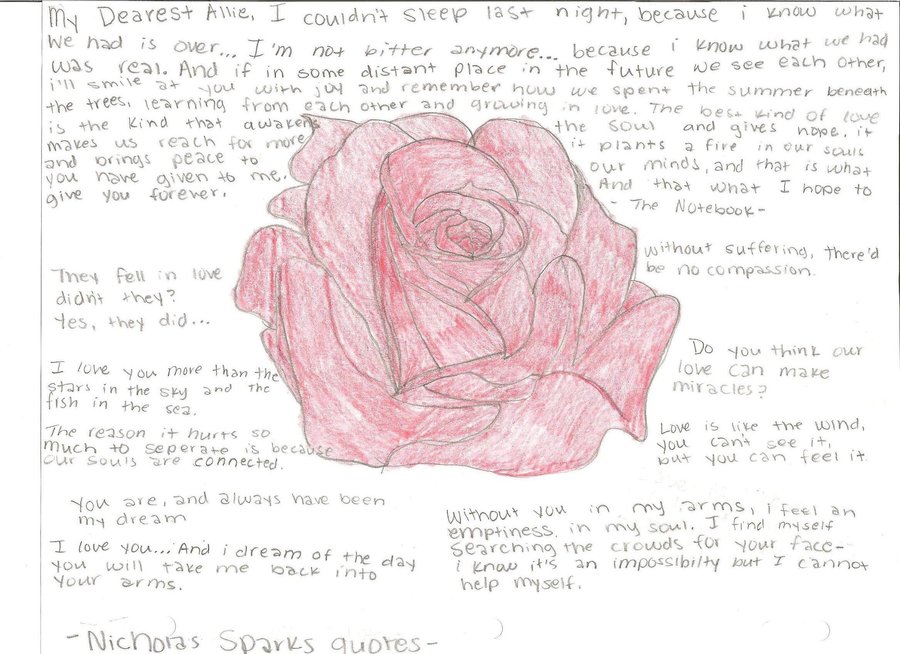 My Dearest Allie, I couldn't sleep last night, because i know what
we had is over... I'm not bitter anymore... because i know what we had
was real. And if in some distant place in the future we see each other,
i'll smile at you with joy and remember how we spent the summer beneath
the trees, learning from each other and growing in love. The best kind of love
is the kind that awakens the soul and gives hope, it
makes us reach for more it plants a fire in our souls
and brings peace to our minds, and that is what
you have given to me. And that what I hope to
give you forever. - The Notebook -
without suffering, there'd
be no compassion.
They fell in love
didn't they?
Yes, they did...
Do you think our
love can make
miracles?
I love you more than the
stars in the sky and the
fish in the sea.
Love is like the wind,
you can't see it,
but you can feel it
The reason it hurts so
much to seperate is because
our souls are connected.
you are, and always have been
my dream
Without you in my arms, i feel an
emptiness in my soul. I find myself
searching the crowds for your face-
i know it's an impossibilty but I cannot
help myself.
I love you... And i dream of the day
you will take me back into
your arms.
- Nicholas Sparks quotes -